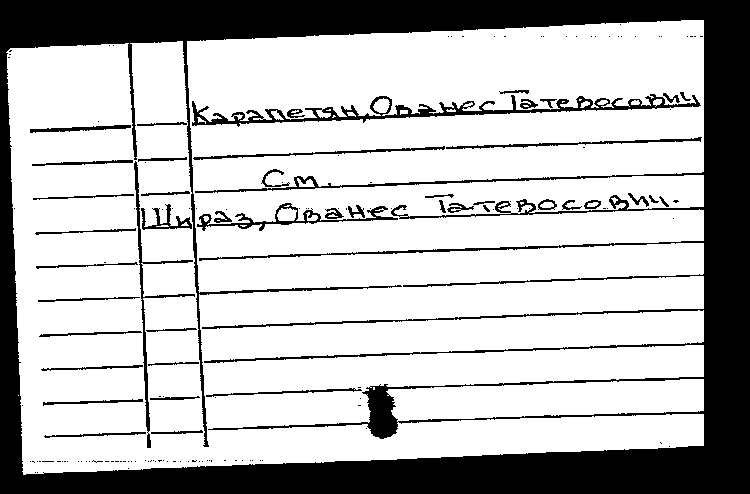 Карапетян, Ованес Татевосович
См.
Шираз, Ованес Татевосович.